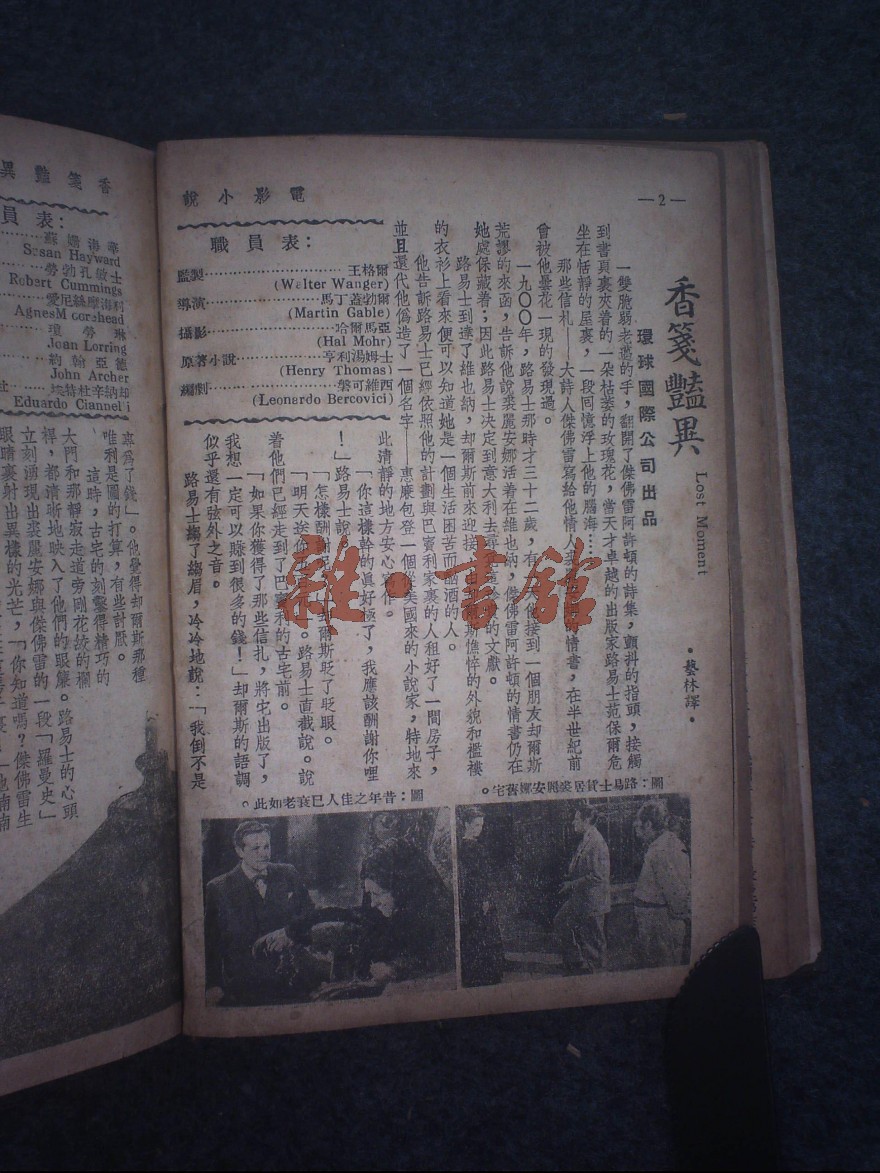 —2—
電影小說
香箋豔異
Lost Moment
•藝林譯•
環球國際公司出品
一雙脆弱老邁的手，翻開了傑佛雷阿許頓的詩集，顫抖的指頭，接觸
到書頁裏夾着的一朵枯萎的玫瑰花，當天才卓越的出版家路易士范保爾危
坐在恬靜的屋裏，一段回憶浮上他的腦海……
那些信札——大詩人傑佛雷寫給他情人裘
情書，在半世紀前
曾被他曇花一現的發現過。
一九〇〇年，路易士那時才三十二歲，有
他接到一個朋友却爾斯
荒謬的來函，告訴他說裘麗安娜活着在維也納，傑佛雷阿許頓的情書仍在
她處保藏着；因此路易士決定到意大利去尋
的文獻。
路易士到達了維也納，却爾斯前來迎接，由
斯憔悴的外貌和襤褸
的衣衫上看來便可以知道她是一個生活困苦而酗酒的人。
他告訴路易士已經依照他的計劃與巴賓利家裏的人租好了一間房子，
並且還代他僞造了一個名字——惠廉包登一個從美國來的小說家，特地來
此清靜的地方安心寫作。
「你這樣幹的眞好極了，我應該酬謝你哩
！」路易士說。
「怎樣酬謝呢？」却爾斯眨了眨眼。
「明天送你
」。路易士直截說。說
着他們已經走到了巴賓利的古宅前。
「如果你獲得了那些信札，將它出版了，
我想一定可以賺到很多的錢！」却爾斯的語調
似乎還有弦外之音。
路易士縐了縐眉，冷冷地說：「我倒不是
職員表：
監製……王格爾
(Walter Wanger)
導演……馬丁蓋勃爾
(Martin Gable)
攝影……哈爾馬亞
(Hal Mohr)
原著小說……亨利湯姆士
(Henry Thomas)
編劇……勞可維西
(Leonardo Bercovici)
圖：路易士賃居裘麗安娜舊宅。
圖：昔年之佳人已衰老如此。
香箋豔異
員表：
蘇珊海華
Susan Hayward
勞勃孔敏士
Robert Cummings
愛尼絲摩海利
Agnes Moorehead
瓊勞琳
Joan Lorring
約翰亞德
John Archer
埃特杜辛納却
Eduardo Ciannelli
專爲了錢」。他覺得却爾斯那種
唯利是圖的打算，有些討厭。
這時，古宅的刻鑿得精巧的
大門和那靜寂走道旁剛花紋的欄
桿，都清晰地映入了他們的眼簾。路易士的心頭
立刻湧現出裘麗安娜與傑佛雷的一段「羅曼史」
眼睛裏射出異樣的光芒，「你知道嗎？傑佛雷生
雜·書館